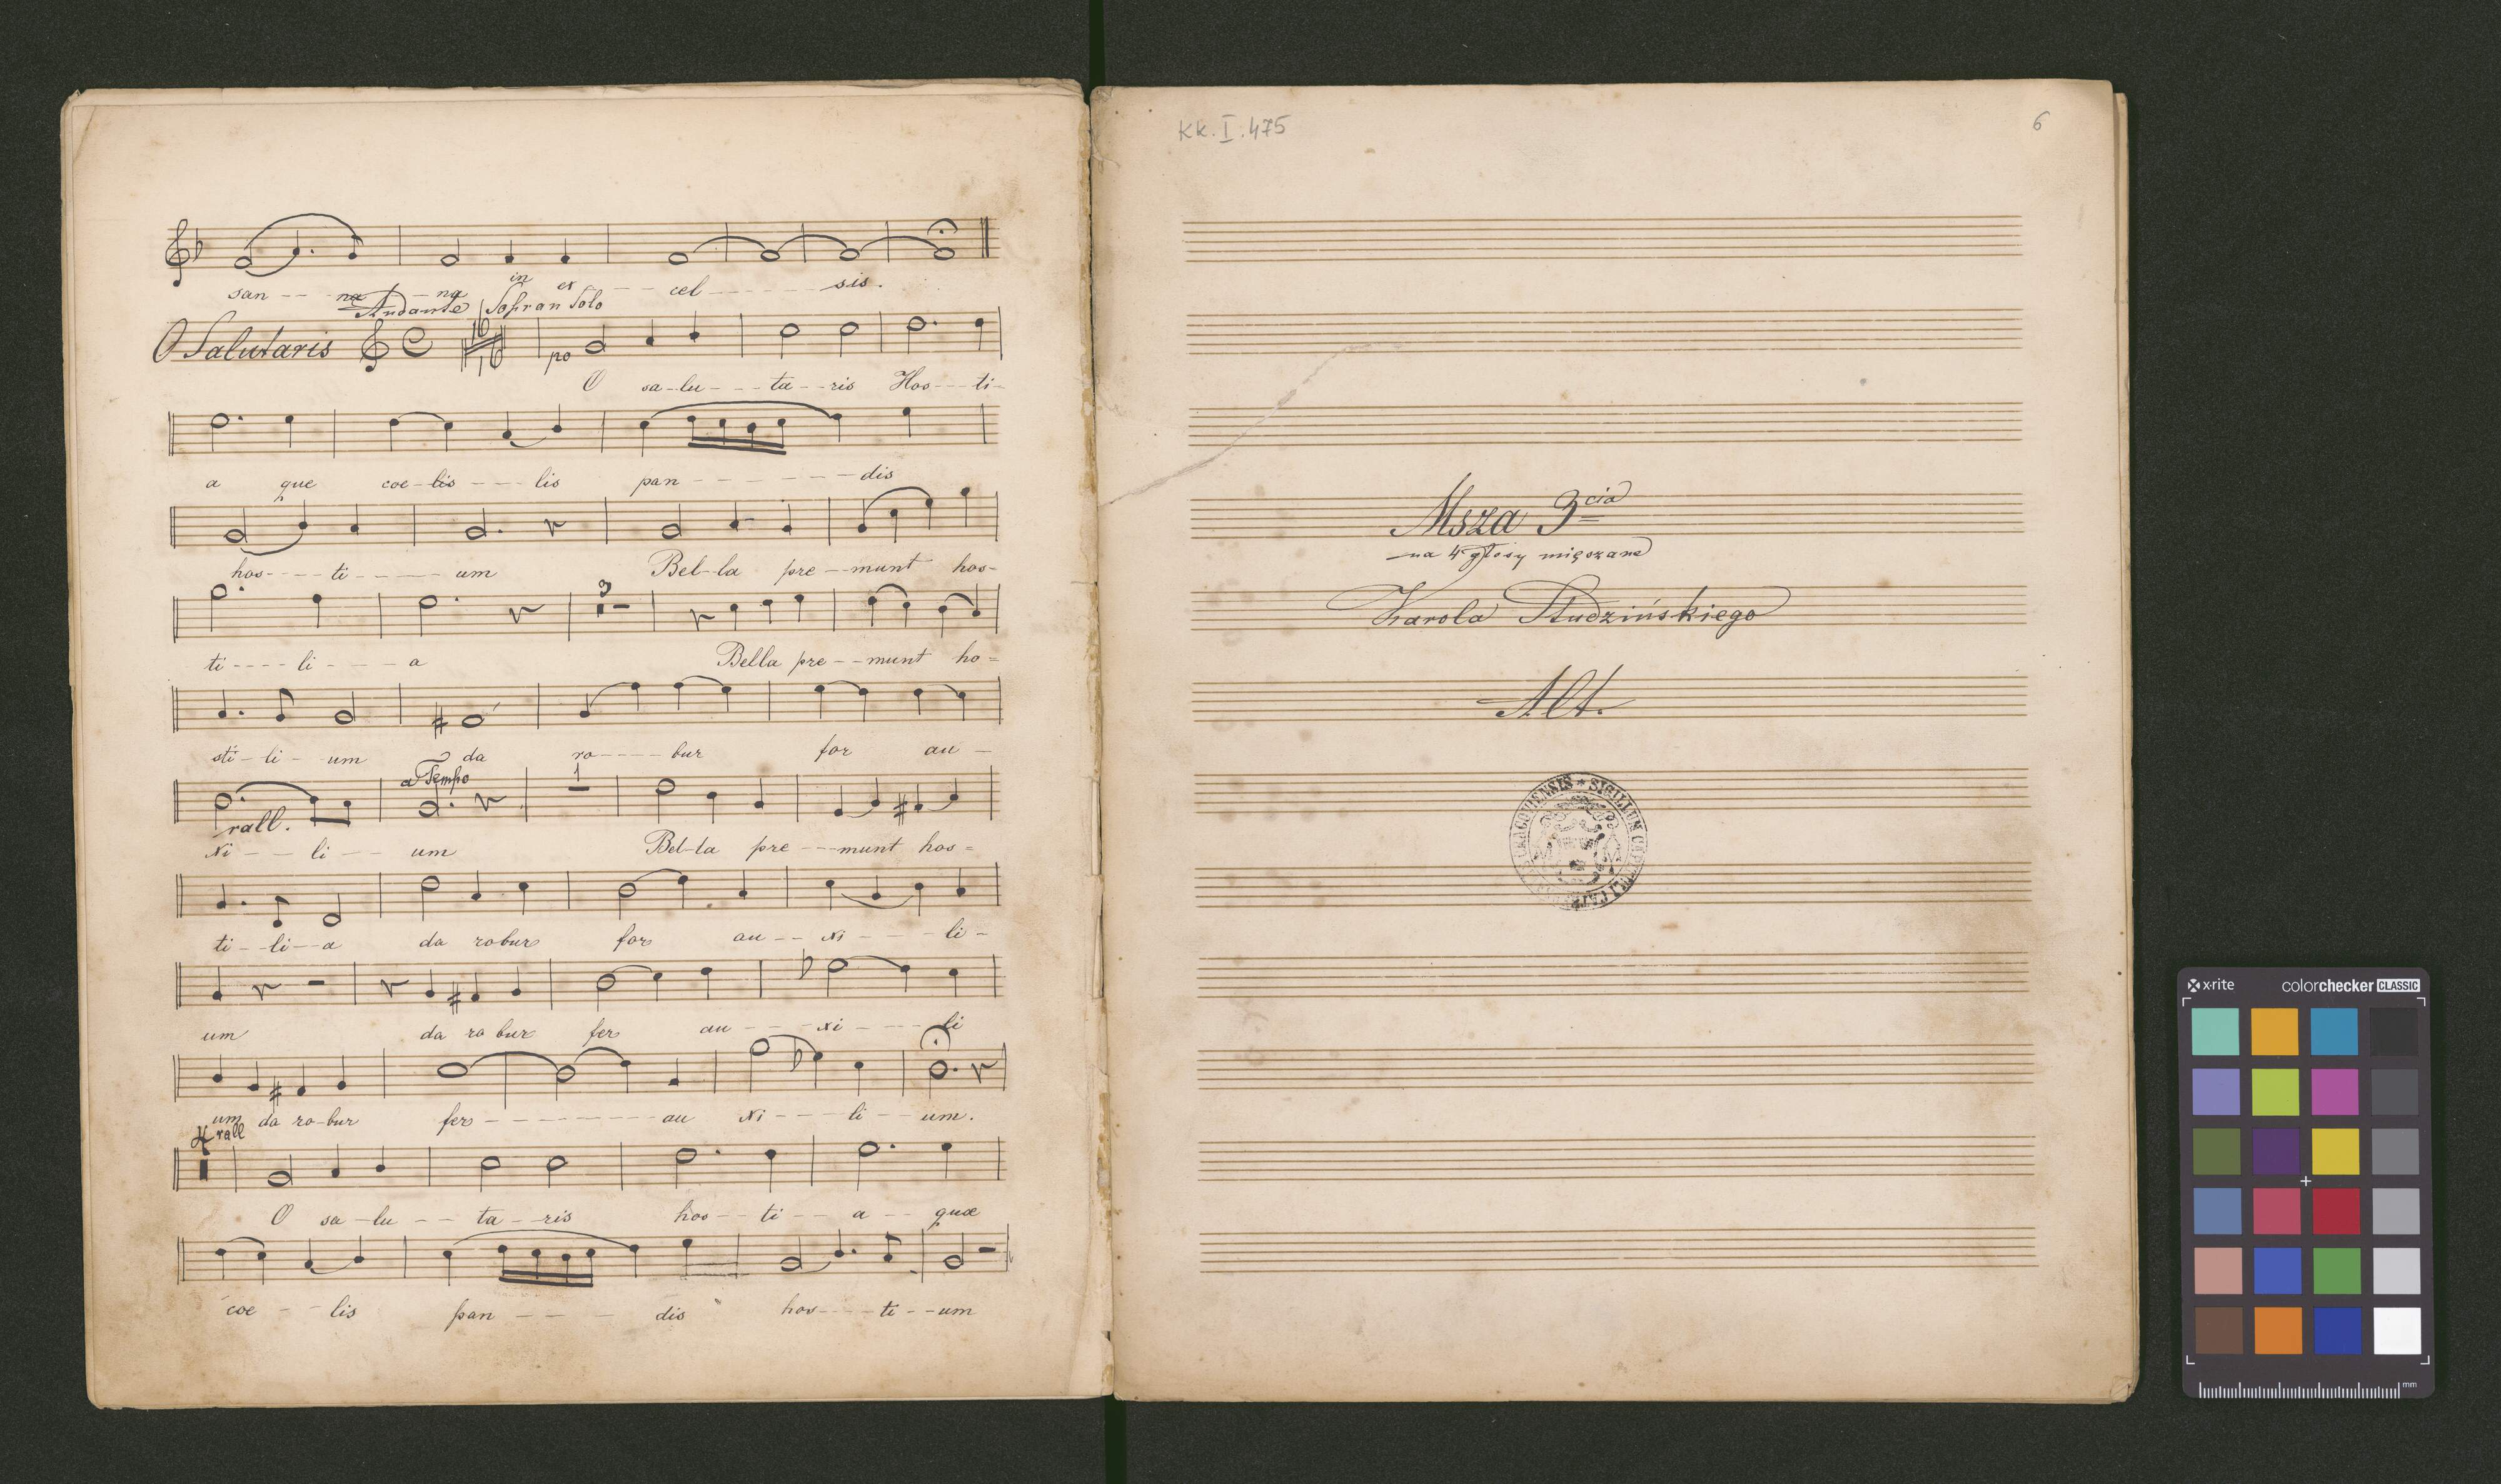 san - - - na - na in ex - - cel - - - - - sis.
Andante Sopran Solo
O Salutaris
po
O sa - lu - - - ta - - ris Hos - - - ti -
a que coe - lis - - - lis pan - - - - - - - dis
hos - - - - ti - - - - - um Bel - la pre - - munt hos -
3
ti - - - - li - - - - a Bella pre - - munt ho =
sti - li - um da ro - - - - bur for au -
a Tempo 1
rall.
xi - - - li - - - um Bel - la pre - - - munt hos =
ti - - li - - a da robur for au - - xi - - - - li -
um da ro bur fer au - - - - xi - - - - li
um da ro - bur fer - - - - - - - - - au xi - - - - li - - um.
4 rall
O sa - lu - - - ta - ris hos - - ti - - - a - - quæ
coe - - - lis pan - - - - dis hos - - - - ti - - um
KK. I. 475
6
Msza 3cia
na 4 głosy mięszane
Karola Studzińskiego
Alt.
SIGILLUM CAPITULI
x-rite colorchecker CLASSIC
mm